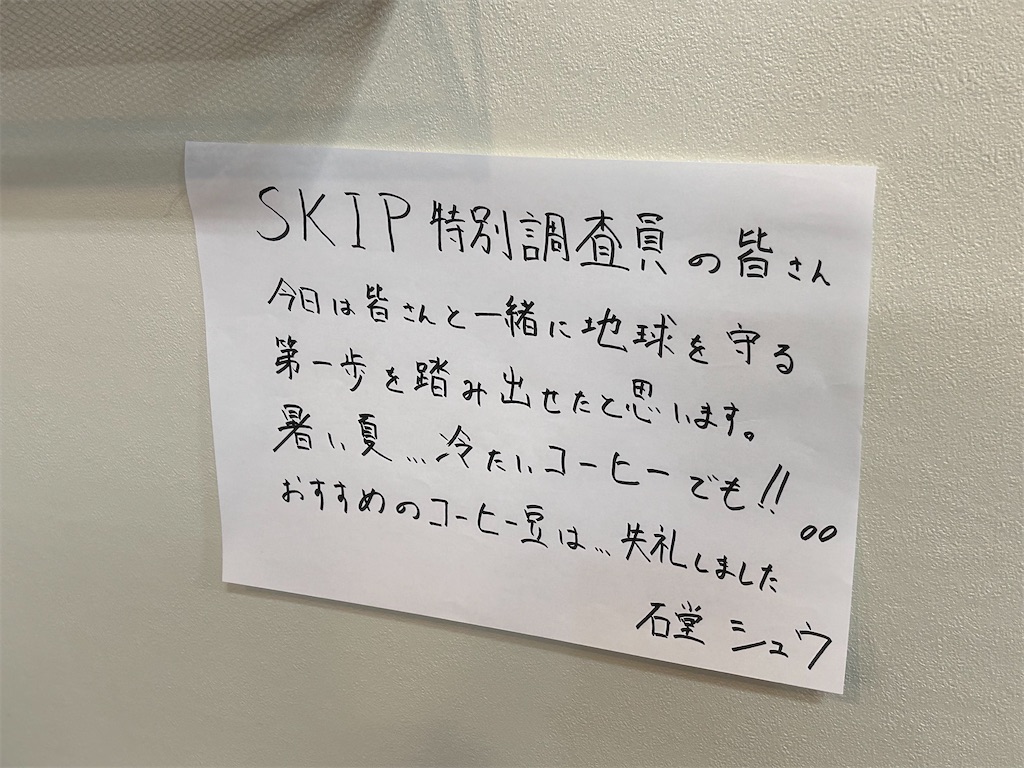 SKIP 特別調査員の皆さん
今日は皆さんと一緒に地球を守る
第一歩を踏み出せたと思います。
暑い夏…冷たいコーヒーでも!!
おすすめのコーヒー豆は…失礼しました。。
石堂 シュウ